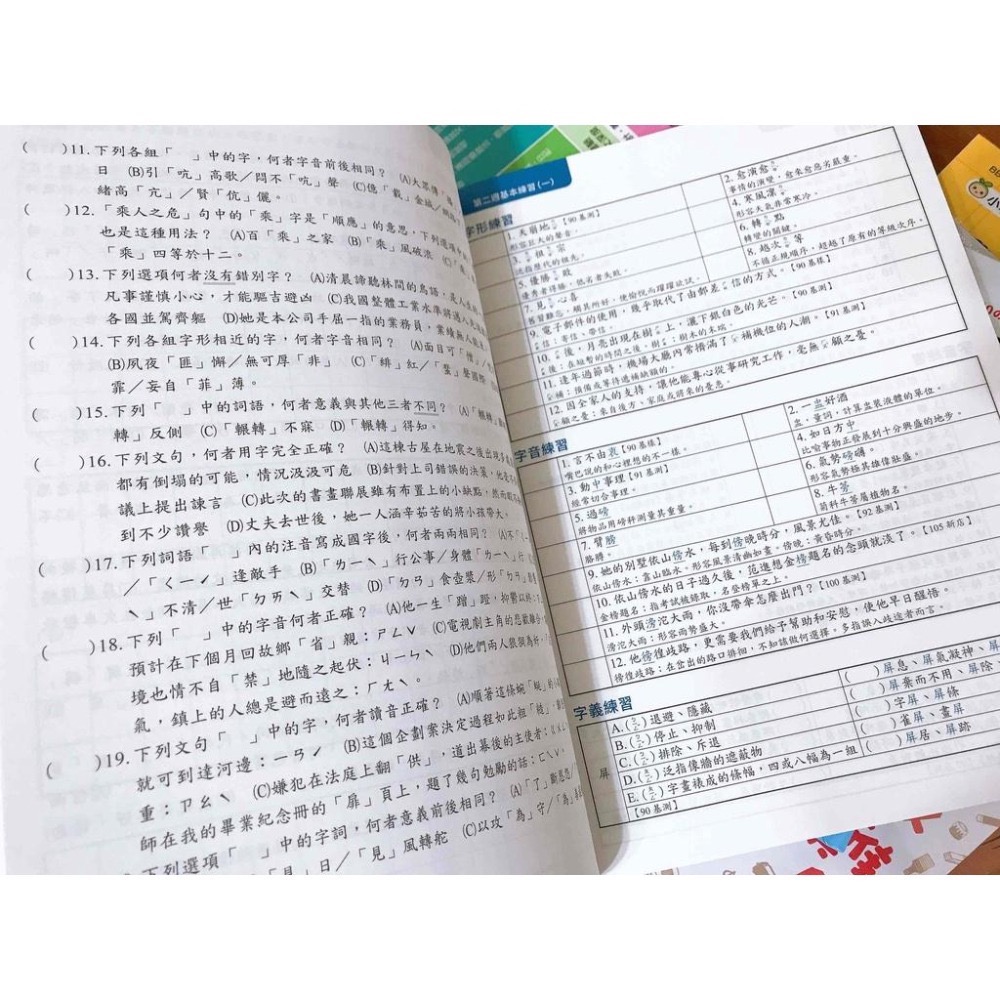 ( )11.下列各組「 」中的字,何者字音前後相同? (A)大眾傳
日 (B)引「吭」高歌/悶不「吭」聲 (C)億「載」金城/
緒高「亢」/賢「伉」儷。
( )12.「乘人之危」句中的「乘」字是「順應」的意思,下列選項
也是這種用法? (A)百「乘」之家 (B)「乘」風破浪 (C)
「乘」四等於十二。
( )13.下列選項何者沒有錯別字? (A)清晨諦聽林間的鳥語,是人生
凡事謹慎小心,才能驅吉避凶 (C)我國整體工業水準將邁入
各國並駕齊軀 (D)她是本公司手屈一指的業務員,業績無人能
( )14.下列各組字形相近的字,何者字音相同? (A)面目可「憎」/
(B)夙夜「匪」懈/無可厚「非」 (C)「緋」紅/「蜚」聲國際
霏/妄自「菲」薄。
( )15.下列「 」中的詞語,何者意義與其他三者不同? (A)「輾轉」
轉」反側 (C)「輾轉」不寐 (D)「輾轉」得知。
( )16.下列文句,何者用字完全正確? (A)這棟古屋在地震之後出現
都有倒塌的可能,情況汲汲可危 (B)針對上司錯誤的決策,他
議上提出諫言 (C)此次的書畫聯展雖有布置上的小缺點,然而
到不少讚譽 (D)丈夫去世後,她一人涵辛茹苦的將小孩帶大。
( )17.下列詞語「 」內的注音寫成國字後,何者兩兩相同? (A)不「
/「ㄑㄧㄥˊ」逢敵手 (B)「ㄌㄧㄥˋ」行公事/身體「ㄌㄧㄥˋ
ˋ」不清/世「ㄉㄞˋ」交替 (D)「ㄉㄢ」食壺漿/形「ㄉㄢ」
( )18.下列「 」中的字音何者正確? (A)他一生「蹭」蹬,抑鬱以終:
預計在下個月回故鄉「省」親:ㄕㄥˇ (C)電視劇主角的悲歡離合
境也情不自「禁」地隨之起伏:ㄐㄧㄣˋ (D)他們兩人狼狽為奸,
氣,鎮上的人總是避而遠之:ㄏㄤˊ。
( )19.下列文句「 」中的字,何者讀音正確? (A)順著這條蜿「蜒」的小
就可到達河邊:ㄧㄢˊ (B)這個企劃案決定過程如此粗「糙」,
重:ㄗㄠˋ (C)嫌犯在法庭上翻「供」,道出幕後的主使者:
師在我的畢業紀念冊的「扉」頁上,題了幾句勉勵的話:ㄈㄟˇ。
下列選項「 」中的字詞,何者意義前後相同? (A)「了」斷恩怨
」日/「見」風轉舵 (C)以攻「為」守/「為」
第二週基本練習(一)
字形練習
1.天崩地 【90基測】
形容巨大的聲音。
2.愈演愈
事情的演變,愈來愈惡劣嚴重。
3. 祖 宗
泛指歷代的祖先。
4.寒風凜
形容天氣非常寒冷。
5.優勝 敗
優秀者得勝,低劣者失敗。
6.轉 點
轉變的關鍵。
7.見 心喜
8.越次 等
不循正規順序,超越了原有的等級次序。
9.電子郵件的使用,幾乎取代了由郵差 信的方式。【90基樣】
信:寄信、帶信。
10. 後,月亮出現在樹 上,灑下銀白色的光芒。【90基測】
後:在短暫的時間之後。樹 :樹木的末端。
11.逢年過節時,機場大廳內常擠滿了 補機位的人潮。【91基測】
補:預備或等待遞補缺額的。
12.因全家人的支持,讓他能專心從事研究工作,毫無 顧之憂。
顧之憂:來自後方、家庭或將來的憂患。
字音練習
1.言不由衷【90基樣】
嘴巴說的和心裡想的不一樣。
2.一盅好酒
盅,量詞,計算盅裝液體的單位。
3.動中事理【91基測】
經常切合事理。
4.如日方中
比喻事物正發展到十分興盛的地步。
5.過磅
將物品用磅秤測量其重量。
6.氣勢磅礡。
形容氣勢極其雄偉壯盛。
7.臂膀
胳膊。
8.牛蒡
菊科牛蒡屬植物名。
9.她的別墅依山傍水,每到傍晚時分,風景尤佳。【92基測】
依山傍水:靠山臨水。形容風景清幽如畫。傍晚:黃昏時分。
10.依山傍水的日子過久後,范進想金榜題名的念頭就淡了。【105新店】
金榜題名:指考試被錄取,名登榜單之上。
11.外頭滂沱大雨,你沒帶傘怎麼出門?【100基測】
滂沱大雨:形容雨勢盛大。
12.他徬徨歧路,更需要我們給予幫助和安慰,使他早日醒悟。
徬徨歧路:在岔出的路口徘徊,不知該做何選擇。多指誤入歧途者而言。
字義練習
屏
A.( )退避、隱藏
B.( )停止、抑制
C.( )排除、斥退
D.( )泛指傳牆的遮蔽物
E.( )字畫裱成的條幅,四或八幅為一組
【90基測】
( )屏息、屏氣凝神、屏
( )屏棄而不用、屏除
( )字屏、屏條
( )雀屏、畫屏
( )屏居、屏跡